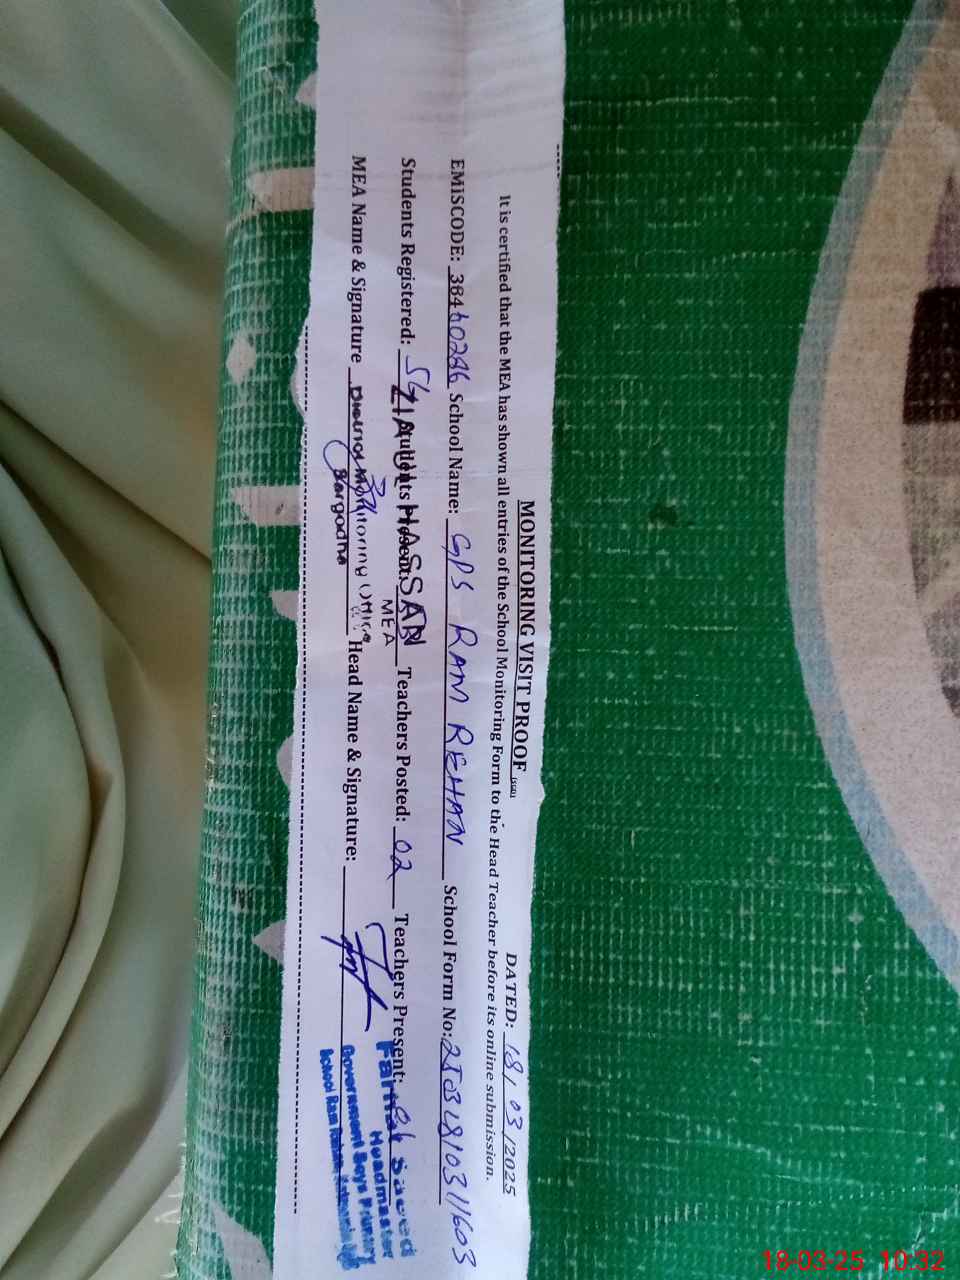 MONITORING VISIT PROOF (SGD)
DATED: 18/03/2025
It is certified that the MEA has shown all entries of the School Monitoring Form to the Head Teacher before its online submission.
EMISCODE: 38460286 School Name: GPS RAM REHAN School Form No: 
Students Registered: 56 Students Present: Teachers Posted: 02 Teachers Present:
ZIA UL HASSAN
MEA
MEA Name & Signature Head Name & Signature:
District Monitoring Office
Sargodha
Saeed
Headmaster
Government Boys Primary
School Ram
18-03-25 10:32